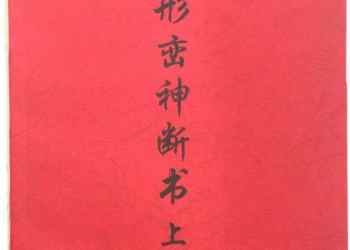 形峦神断书上